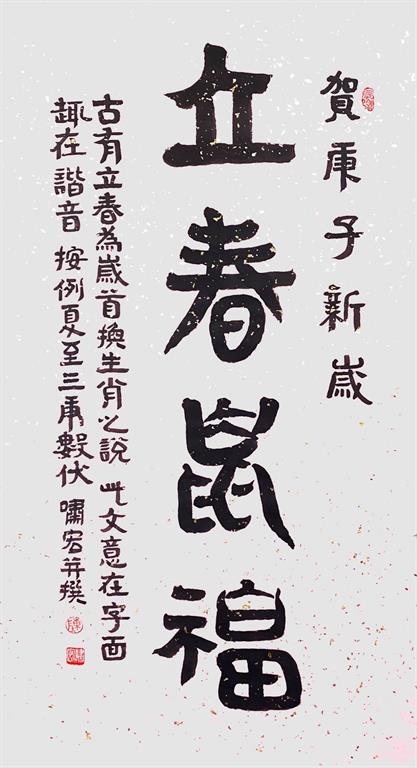 賀庚子新歲
立春鼠福
古有立春為歲首換生肖之說 此文意在字面
趣在諧音 按例夏至三庚數伏 嘯宏并撰